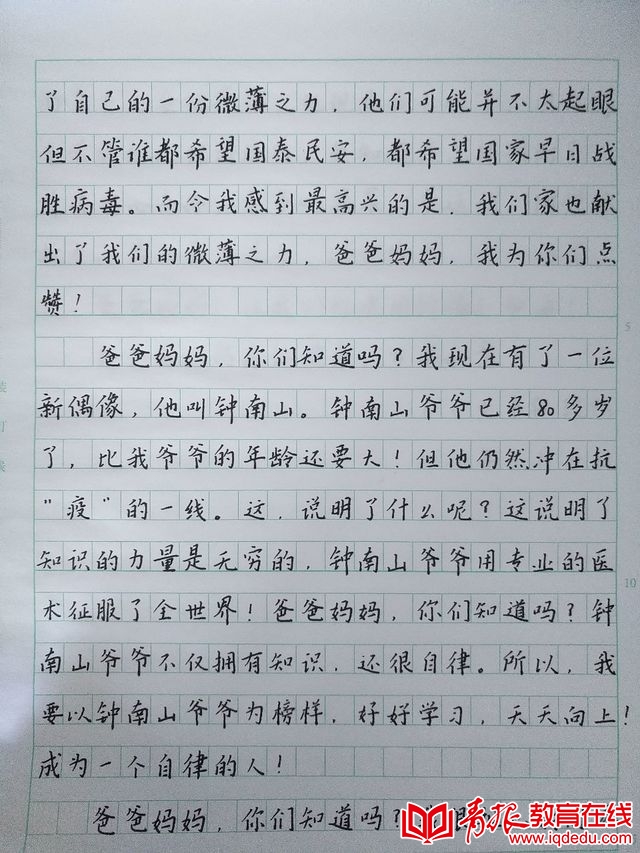 了自己的一份微薄之力，他们可能并不太起眼
但不管谁都希望国泰民安，都希望国家早日战
胜病毒。而今我感到最高兴的是，我们家也献
出了我们的微薄之力，爸爸妈妈，我为你们点
赞！
爸爸妈妈，你们知道吗？我现在有了一位
新偶像，他叫钟南山。钟南山爷爷已经80多岁
了，比我爷爷的年龄还要大！但他仍然冲在抗
“疫”的一线。这，说明了什么呢？这说明了
知识的力量是无穷的，钟南山爷爷用专业的医
术征服了全世界！爸爸妈妈，你们知道吗？钟
南山爷爷不仅拥有知识，还很自律。所以，我
要以钟南山爷爷为榜样，好好学习，天天向上！
成为一个自律的人！
爸爸妈妈，你们知道吗？
5
10
装
订
青报教育在线
www.iqdedu.com